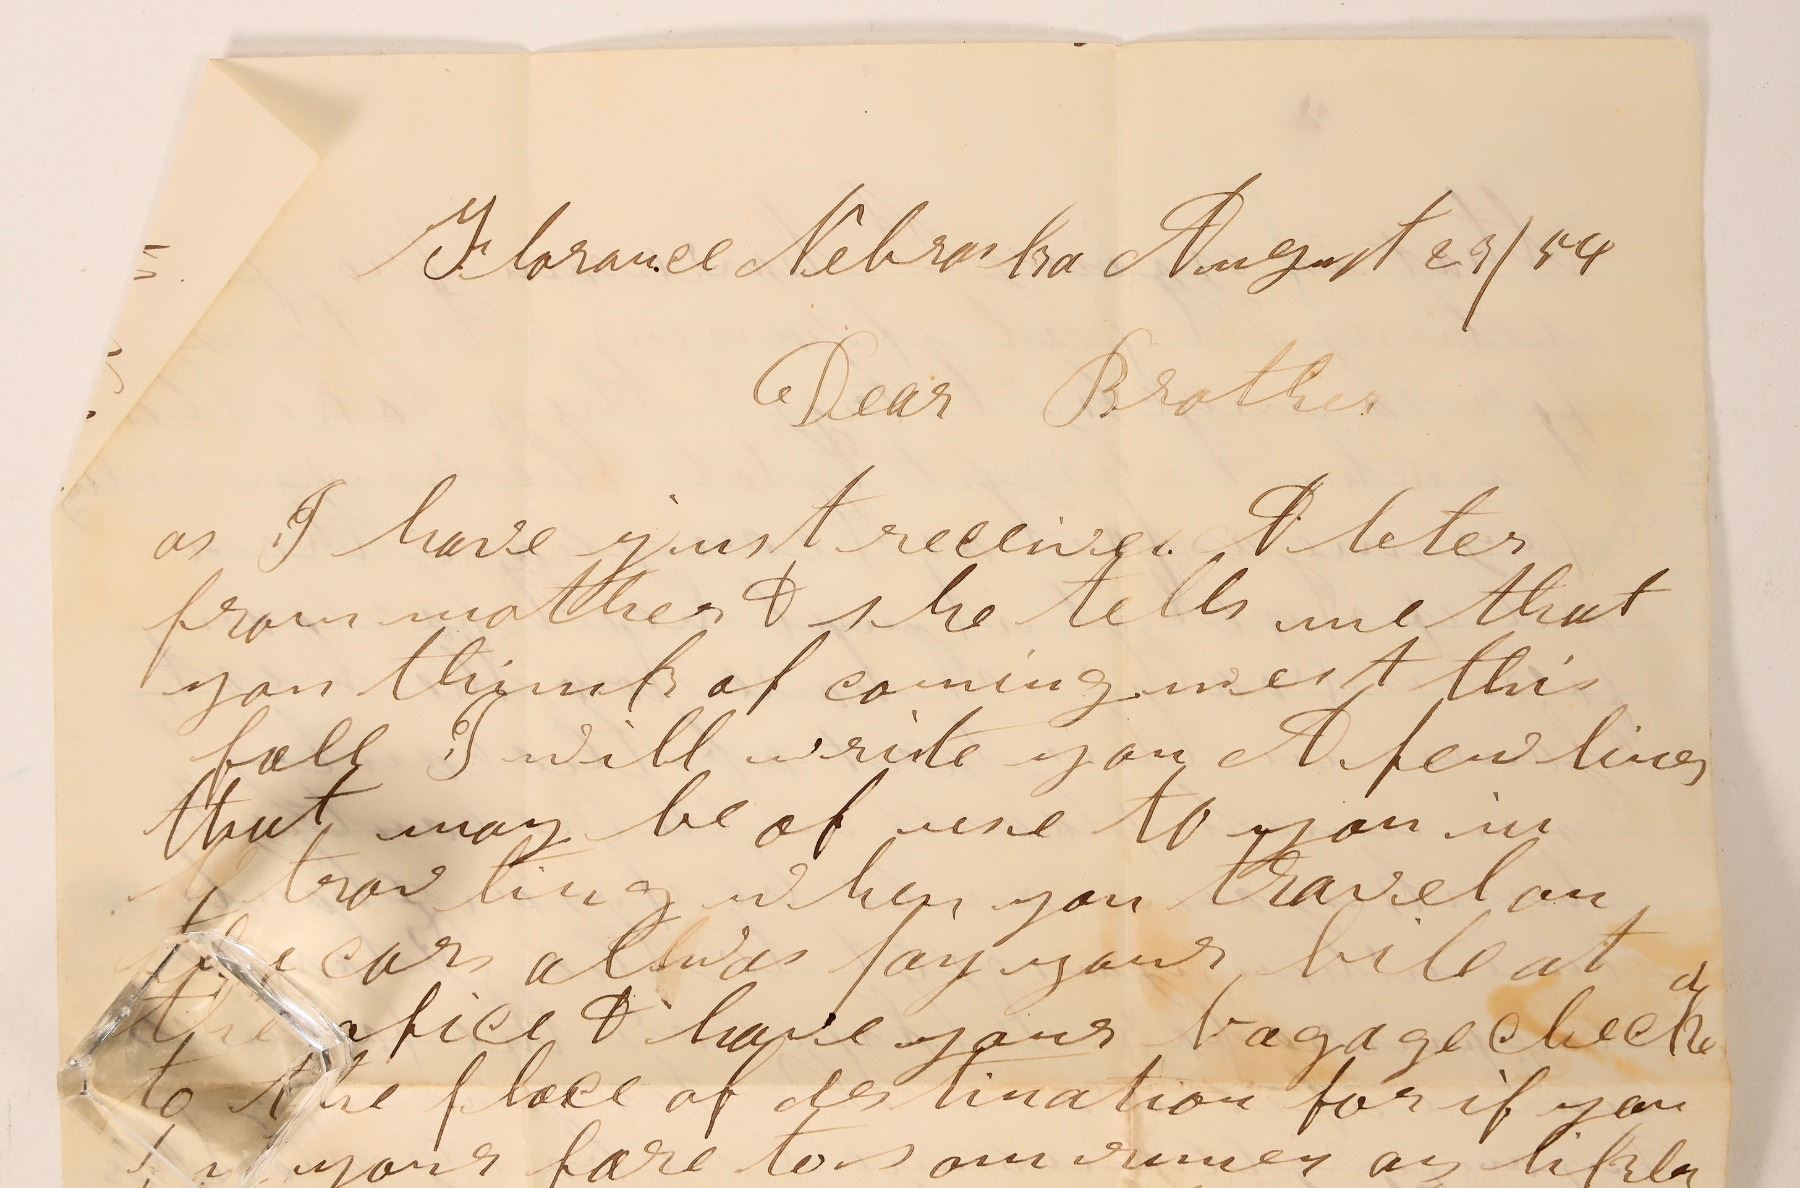 Florance Nebraska August 29/54
Dear Brother
as I have just receive A leter
from mother & she tells me that
you think of coming west this
fall I will write you A few lines
that may be of use to you in
travling when you travel on
the cars allwas pay your bile at
the ofice & have your bagage checked
to the place of destination for if you
your fare to